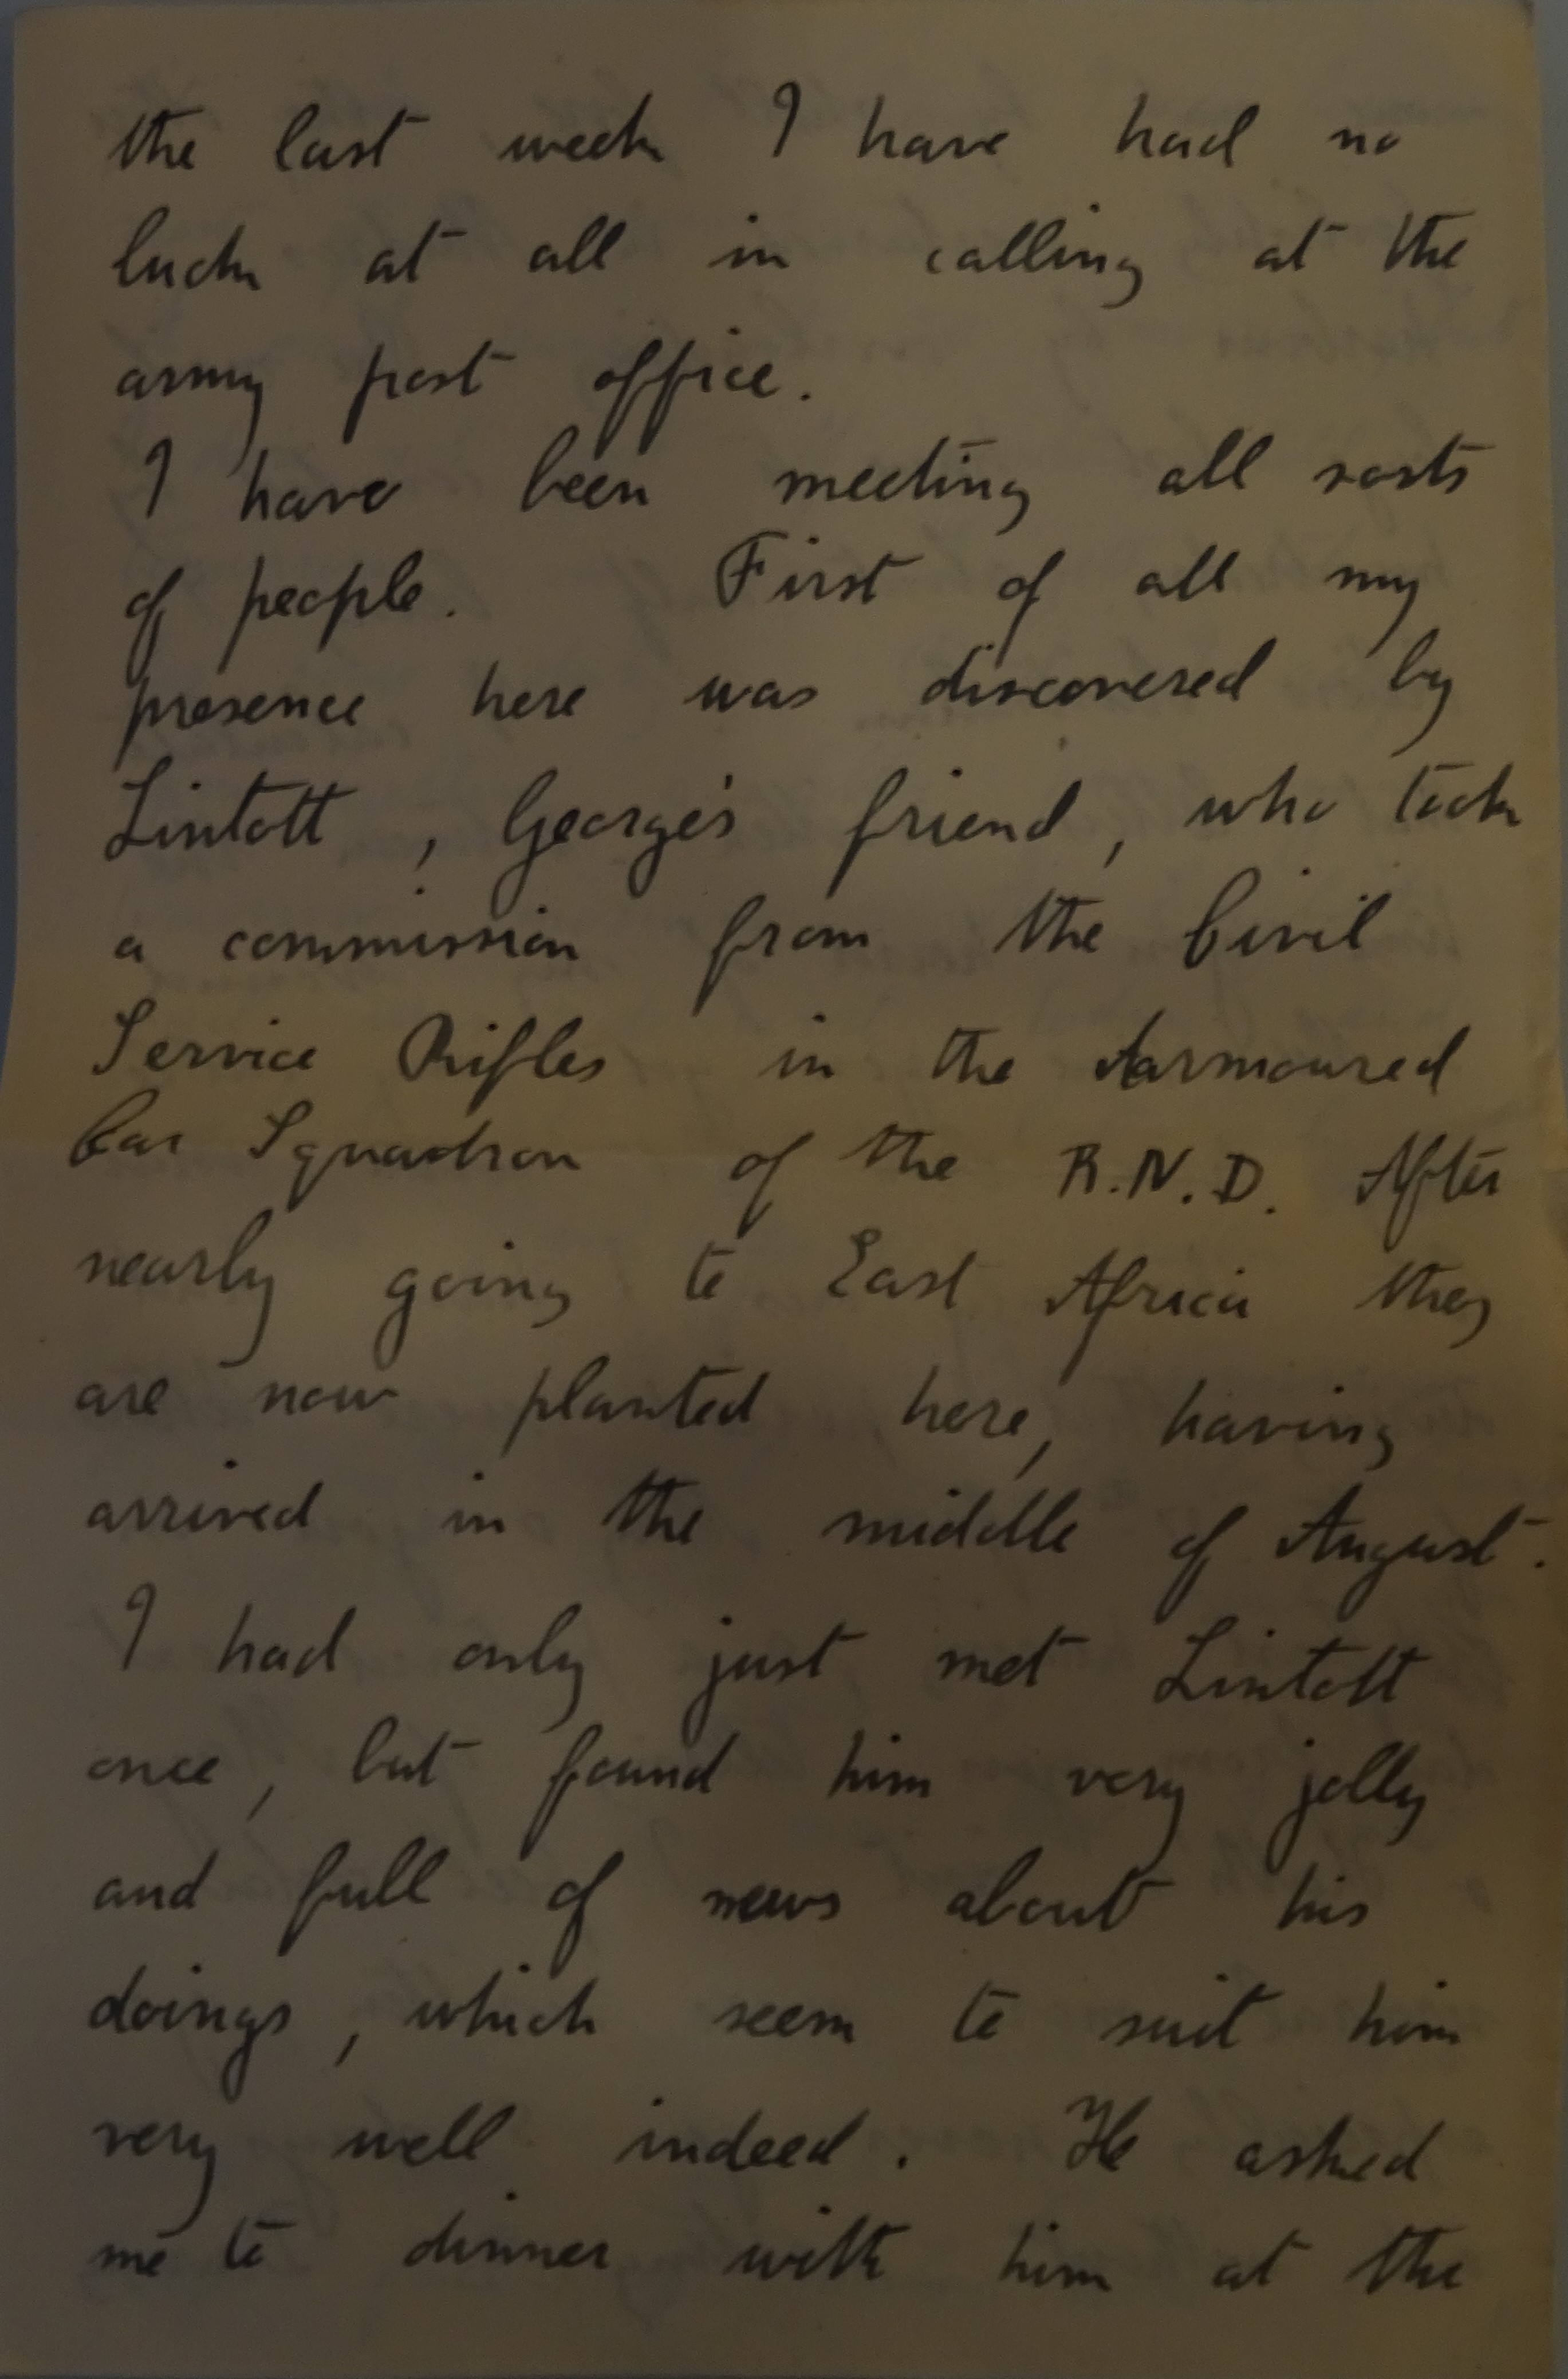 the last week I have had no
luck at all in calling at the
army post office.
I have been meeting all sorts
of people. First of all my
presence here was discovered by
Lintott, George's friend, who took
a commission from the Civil
Service Rifles in the Armoured
Car Squadron of the R.N.D. After
nearly going to East Africa they
are now planted here, having
arrived in the middle of August.
I had only just met Lintott
once, but found him very jolly
and full of news about his
doings, which seem to suit him
very well indeed. He asked
me to dinner with him at the